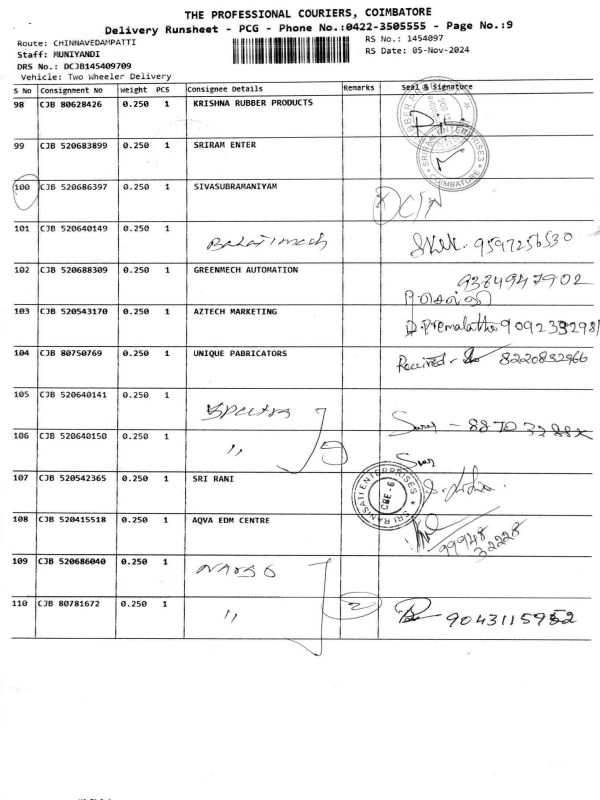 THE PROFESSIONAL COURIERS, COIMBATORE
Delivery Runsheet - PCG - Phone No.:0422-3505555 - Page No.:9
Route: CHINNAVEDAMPATTI
RS No.: 1454097
Staff: MUNIYANDI
RS Date: 05-Nov-2024
DRS No.: DCJB145409709
Vehicle: Two Wheeler Delivery
S No Consignment No Weight PCS Consignee Details Remarks Seal & Signature
98 CJB 80628426 0.250 1 KRISHNA RUBBER PRODUCTS
99 CJB 520683899 0.250 1 SRIRAM ENTER
SRIRAM ENTERPRISES COIMBATORE
100 CJB 520686397 0.250 1 SIVASUBRAMANIYAM
101 CJB 520640149 0.250 1 9597256530
102 CJB 520688309 0.250 1 GREENMECH AUTOMATION
9374947902
103 CJB 520543170 0.250 1 AZTECH MARKETING
D. Premalatha 9092332981
104 CJB 80750769 0.250 1 UNIQUE PABRICATORS Received - 8220832966
105 CJB 520640141 0.250 1
106 CJB 520640150 0.250 1 "
107 CJB 520542365 0.250 1 SRI RANI
SRI RANSATI ENTERPRISES CBE-6
108 CJB 520415518 0.250 1 AQVA EDM CENTRE
99948
32228
109 CJB 520686040 0.250 1
110 CJB 80781672 0.250 1 " 2 9043115952